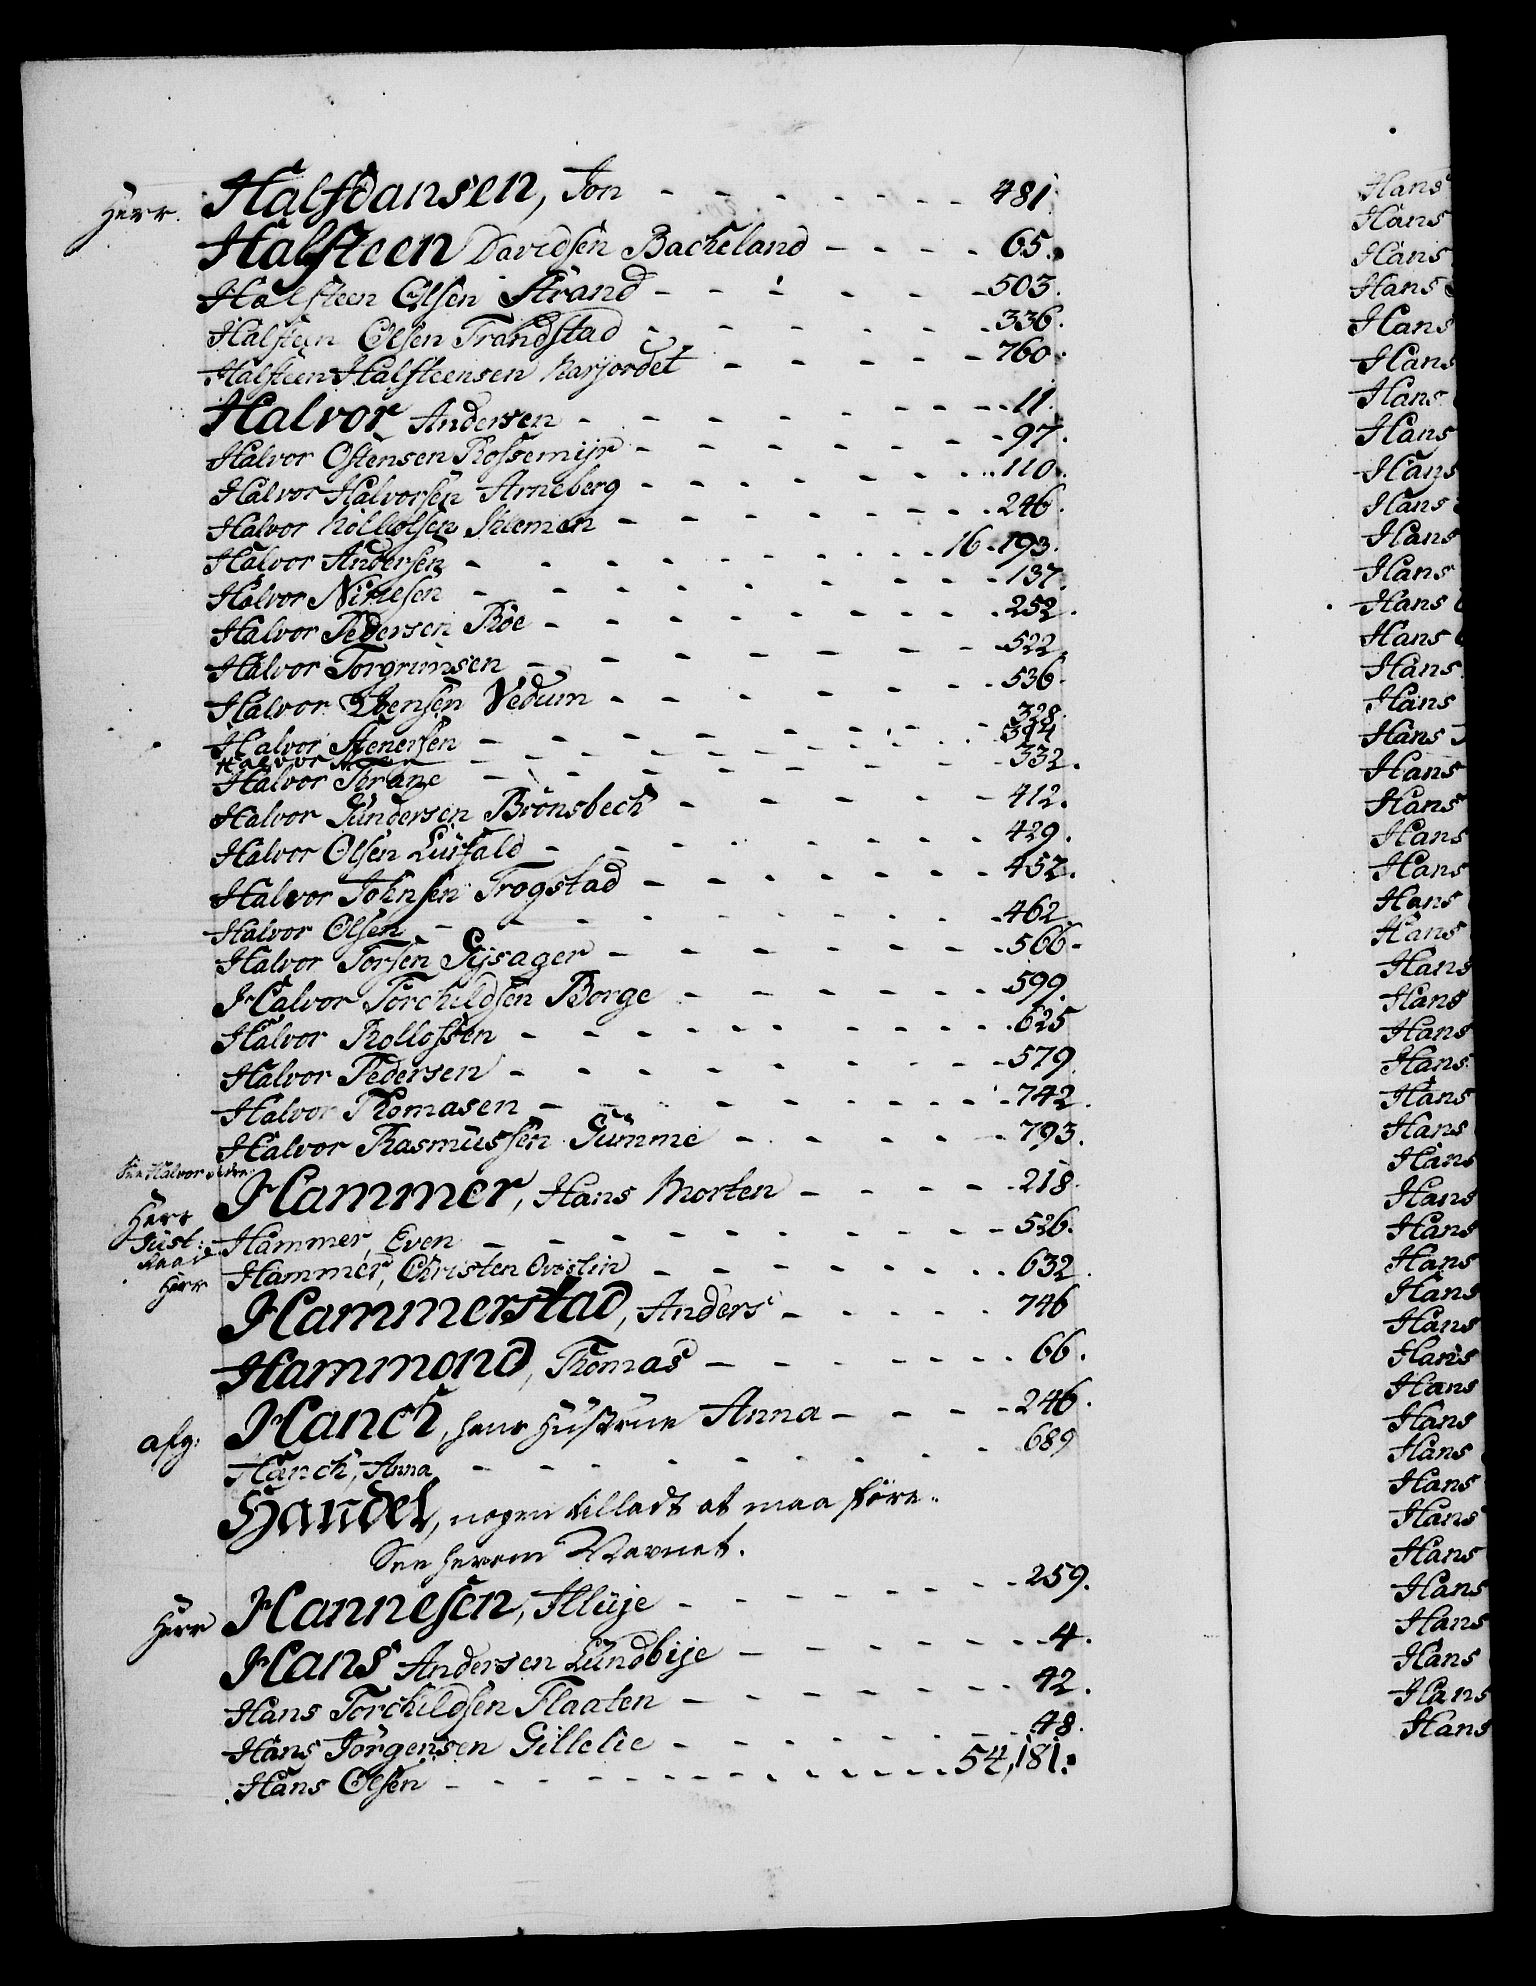 Herr. Halfdansen, Jon - - - - - - - 481.
Halsteen Davidsen Backeland - - - - 65.
Halsteen Olsen Strand - - - - - - 503.
Halsteen Olsen Trandstad - - - - - - 336.
Halsteen Halsteensen Marjordet - - - - - 760.
Halvor Andersen - - - - - - - 11.
Halvor Ostensen Rossemyr - - - - - - 97.
Halvor Halvorsen Arneberg - - - - - - 110.
Halvor - - - - - - 246.
Halvor Andersen - - - - - - - 16. 193.
Halvor Nirisen - - - - - - - 137.
Halvor Pedersen Roe - - - - - - - 252.
Halvor Torgrimsen - - - - - - - 522.
Halvor Vedum - - - - - - 536.
Halvor Stenersen - - - - - - - 328.
Halvor - - - - - - - 394
Halvor Thrane - - - - - - - 332.
Halvor Gundersen Bronsbech - - - - - 412.
Halvor Olsen Lurfald - - - - - - - 429.
Halvor Johnsen Trogstad - - - - - - 452.
Halvor Olsen - - - - - - - 462.
Halvor Torsen Gijsager - - - - - - 566.
Halvor Torchildsen Borge - - - - - - 599.
Halvor Rollossen - - - - - - - 625
Halvor Pedersen - - - - - - - 579.
Halvor Thomasen - - - - - - - 742.
Halvor Rasmussen Gumme - - - - - 793.
See Halvor
Herr Hammer, Hans Morten - - - - 218.
Just: Raad Hammer, Even - - - - - - - 526.
Herr Hammer, Christen - - - - - - 632.
Hammerstad, Anders - - - - - 746
Hammond, Thomas - - - - - - 66.
afg: Hanch, hans Hustrue Anna - - - - 246.
Hanch, Anna - - - - - - - 689
Handel, nogen tilladt at maa före.
See herom Navnet.
Herr Hannesen, Illuje - - - - - - 259.
Hans Andersen Lundbije - - - - - - 4.
Hans Torchildsen Flaaten - - - - - - 42.
Hans Jörgensen Gillelie - - - - - - 48.
Hans Olsen - - - - - - - 54, 181.
Hans
Hans
Hans
Hans
Hans
Hans
Hans
Hans
Hans
Hans
Hans
Hans
Hans
Hans
Hans
Hans
Hans
Hans
Hans
Hans
Hans
Hans
Hans
Hans
Hans
Hans
Hans
Hans
Hans
Hans
Hans
Hans
Hans
Hans
Hans
Hans
Hans
Hans
Hans
Hans
Hans
Hans
Hans
Hans
Hans
Hans
Hans